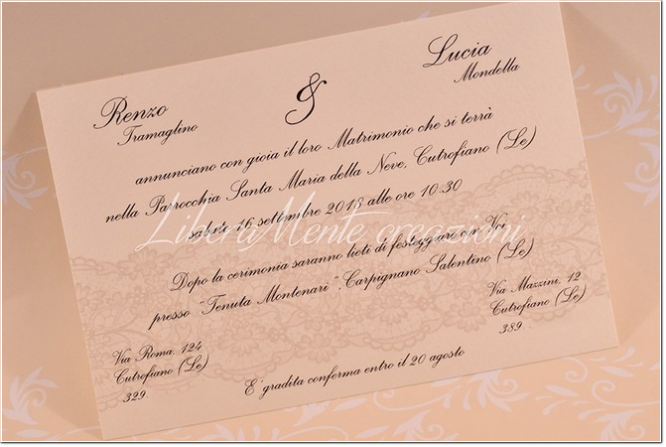 Renzo
Tramaglino
&
Lucia
Mondella
annunciano con gioia il loro Matrimonio che si terrà
nella Parrocchia Santa Maria della Neve, Cutrofiano (Le)
sabato 16 settembre 2013 alle ore 10.30
LiberaMente creazioni
Dopo la cerimonia saranno lieti di festeggiare con Voi
presso "Tenuta Montenari", Carpignano Salentino (Le)
Via Roma, 124
Cutrofiano (Le)
329
Via Mazzini, 12
Cutrofiano (Le)
389
E' gradita conferma entro il 20 agosto